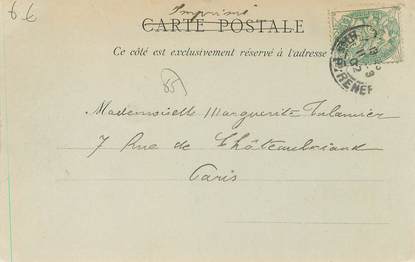 6.6
Imprimé
CARTE POSTALE
Ce côté est exclusivement réservé à l'adresse
85
Mademoiselle Marguerite
7 Rue de Châteaubriand
Paris